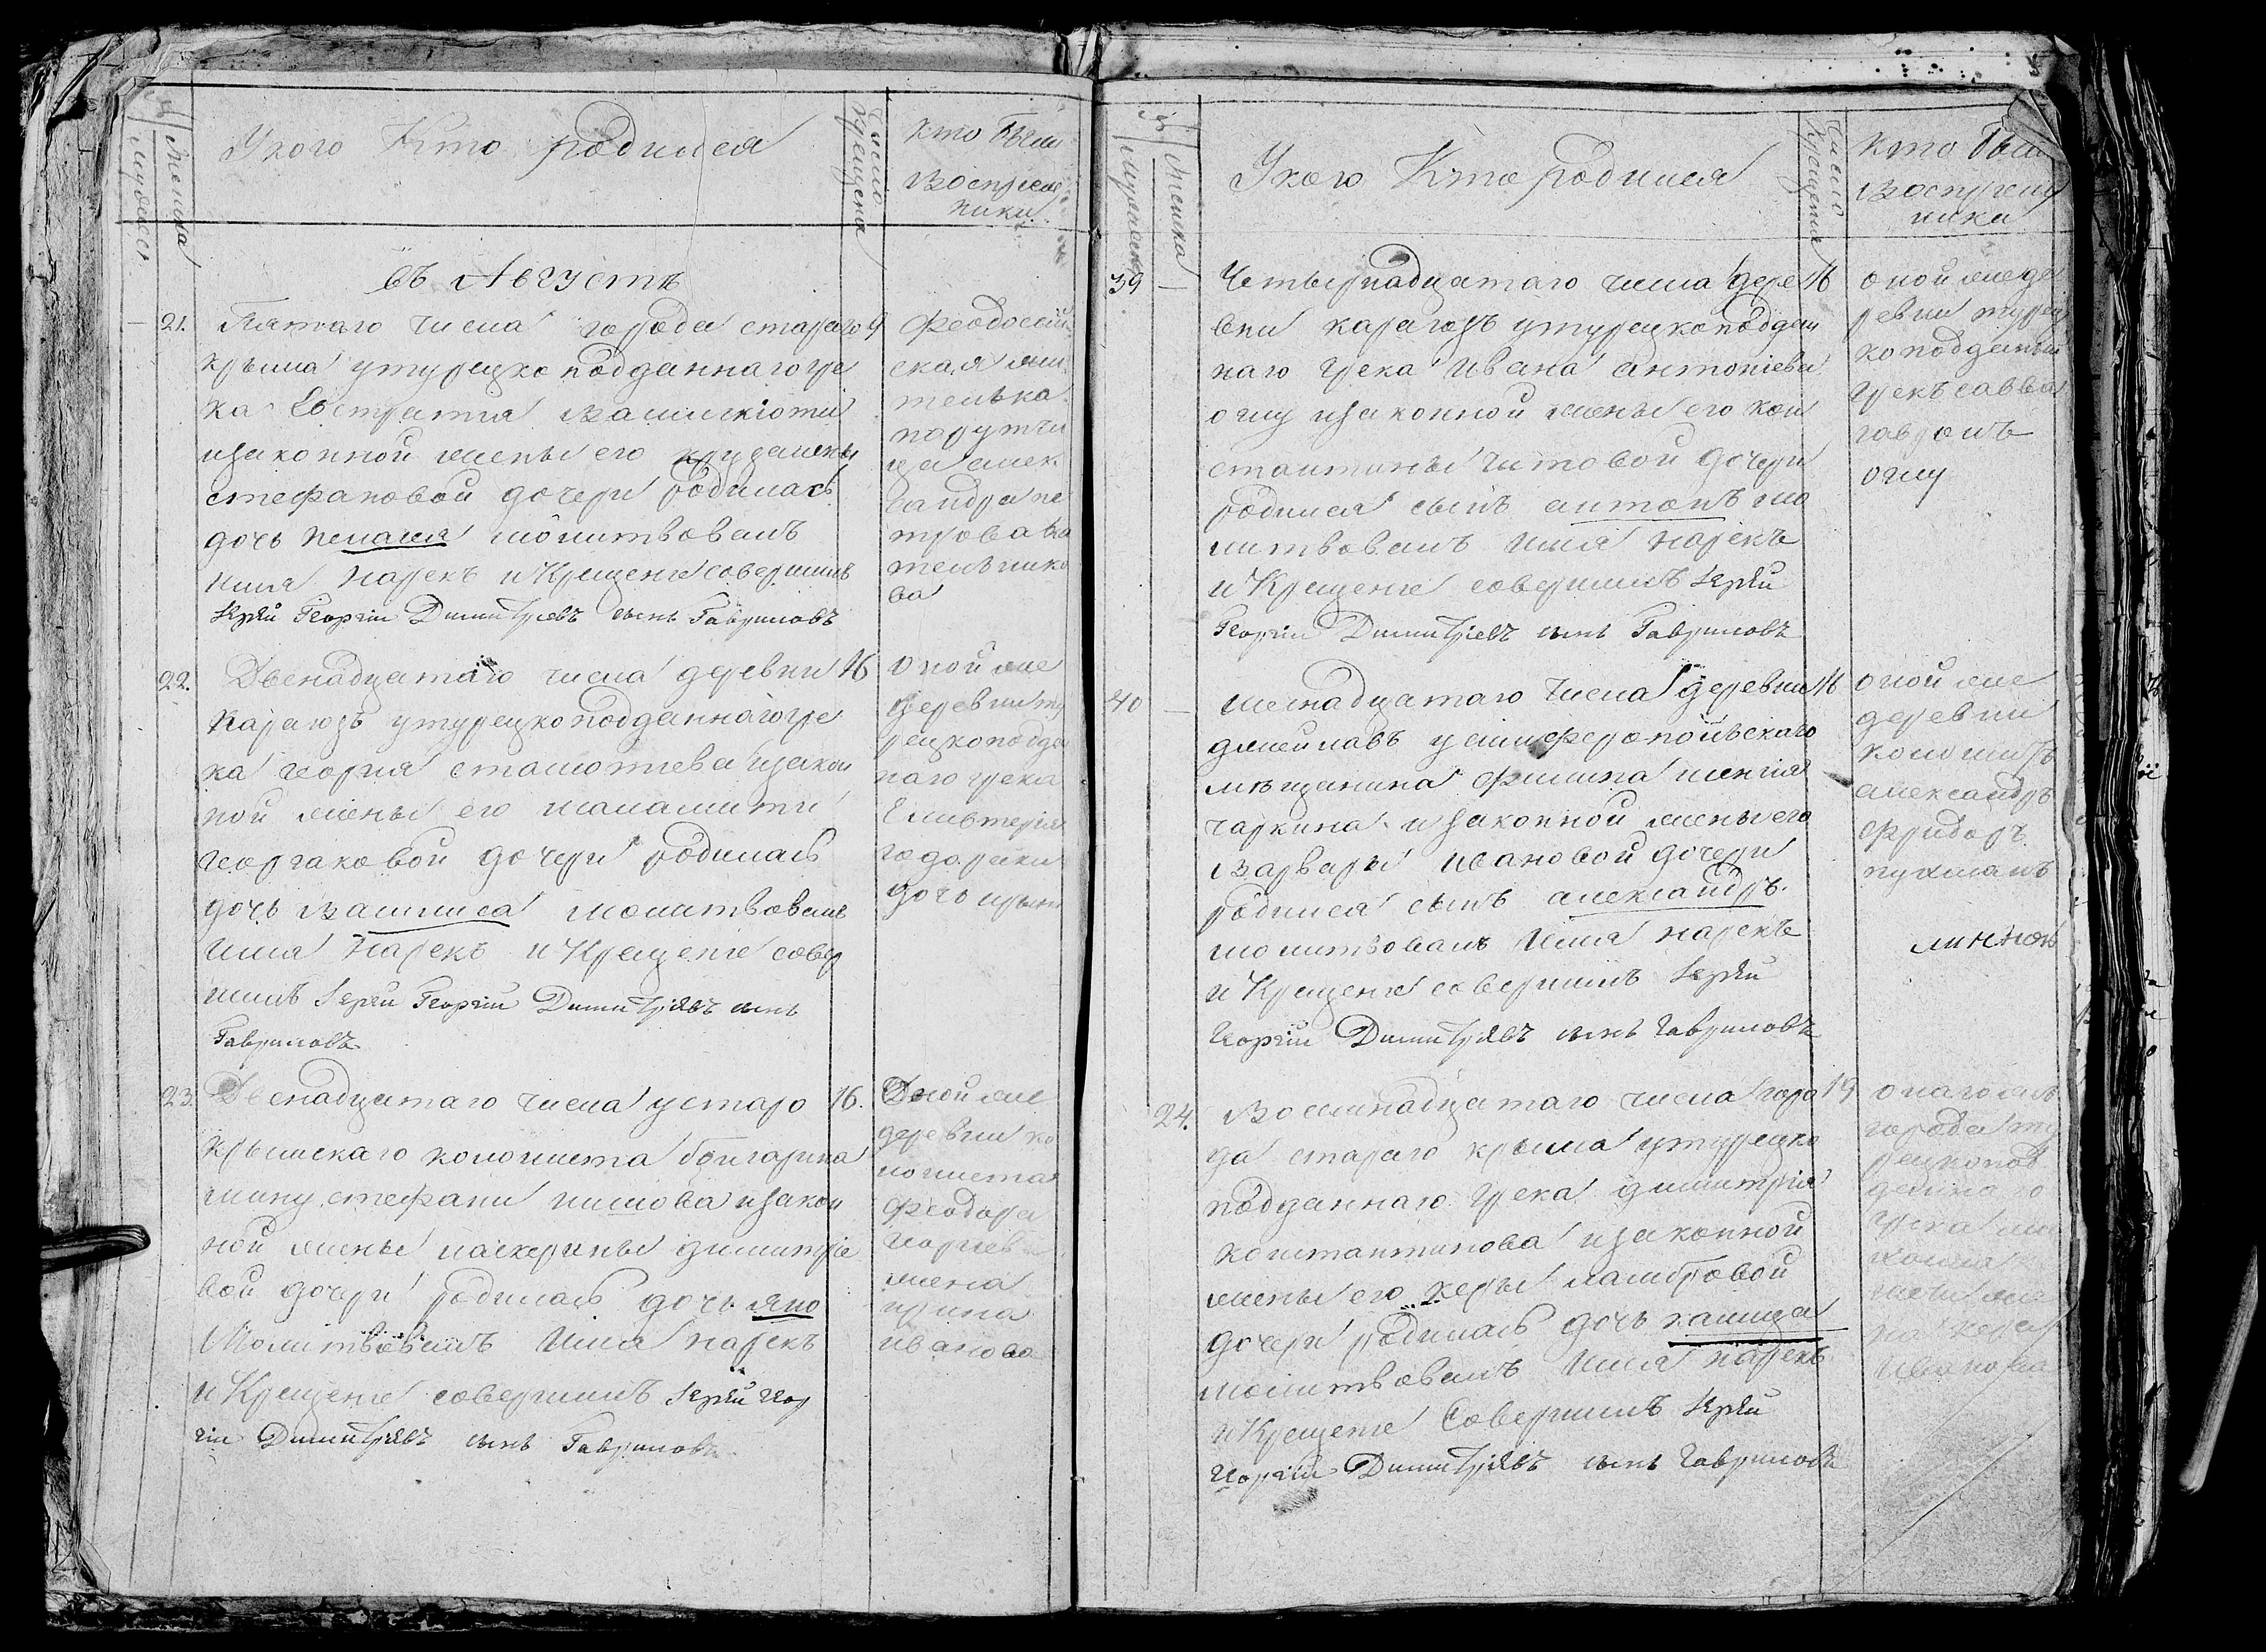 У кого Кто родился
Число крещения
Кто были
Воспріем
ники
въ Августѣ
21. Пятаго числа города стараго 9
крыма у турецко подданнаго гре
ка Евстратія
и законной жены его
стефановой дочери родилась
дочь пелагея молитвовалъ
имя нарекъ и Крещеніе совершилъ
Іерей Георгій Димитріевъ сынъ Гавриловъ
феодосій
ская жи
телька
поручи
ца алек
сандра пе
трова ко
тельнико
ва
22. Двенадцатаго числа деревни 16
Карагозъ у турецкоподданнаго гре
ка георгия стаматиева и закон
ной жены его
георгаковой дочери родилась
дочь василиса молитвовалъ
имя нарекъ и Крещеніе совер
шилъ Іерей Георгій Димитріевъ сынъ
Гавриловъ
оной же
деревни ту
рецкоподдан
наго грека
Елевтерія
дочь
23. Двенадцатаго числа у старо 16.
крымскаго колониста болгарина
стефани и закон
ной жены димитріе
вой дочери родилась дочь яно
Молитвовалъ имя нарекъ
и Крещеніе совершилъ Іерей Геор
гій Димитріевъ сынъ Гавриловъ
Оной же
деревни ко
лониста
феодора
георгиев
жена
ирина
иванова
У кого Кто родился
Число Крещения
Кто были
Воспріем
ники
39 — Четырнадцатаго числа дере 16
вни карагозъ у турецкоподдан
наго грека ивана антоніева
оглу и законной жены его кон
стантины титовой дочери
родился сынъ антонъ мо
литвовалъ имя нарекъ
и Крещеніе совершилъ Іерей
Георгій Димитріевъ сынъ Гавриловъ
оной же де
ревни турец
коподданый
грекъ савва
оглу
40 — шеснадцатаго числа деревни 16
у симферопольскаго
мѣщанина филипа
чаркина и законной жены его
Варвары ивановой дочери
родился сынъ александръ
молитвовалъ имя нарекъ
и Крещеніе совершилъ Іерей
Георгій Димитріевъ сынъ Гавриловъ
оной же
деревни
колонистъ
александръ
24. Восемнадцатаго числа горо 19
да стараго крыма у турецко
подданнаго грека димитрія
константинова и законной
жены его керы ламбровой
дочери родилась дочь
молитвовалъ имя нарекъ
и Крещеніе Совершилъ Іерей
Георгій Димитріевъ сынъ Гавриловъ
онаго же
города ту
рецкопод
даннаго
грека
жена
на кера
Иванова